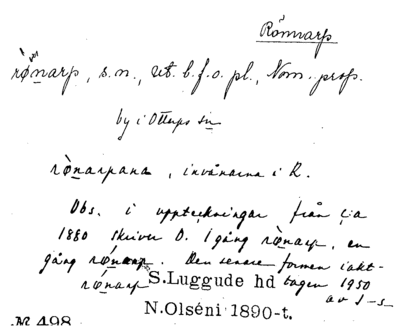 Rönnarp
rø̀narp, s.n., ut. b. f. o. pl., Nom. prop.
by i Ottarps sn
rø̀narpana, invånarna i R.
Obs. i uppteckningar från c:a
1880 skriver O. 1 gång rø̀narp, en
gång rǿnarp. Den senare formen iakt-
rǿnarp S. Luggude hd tagen 1950
N. Olséni 1890-t. av I-s
№ 498